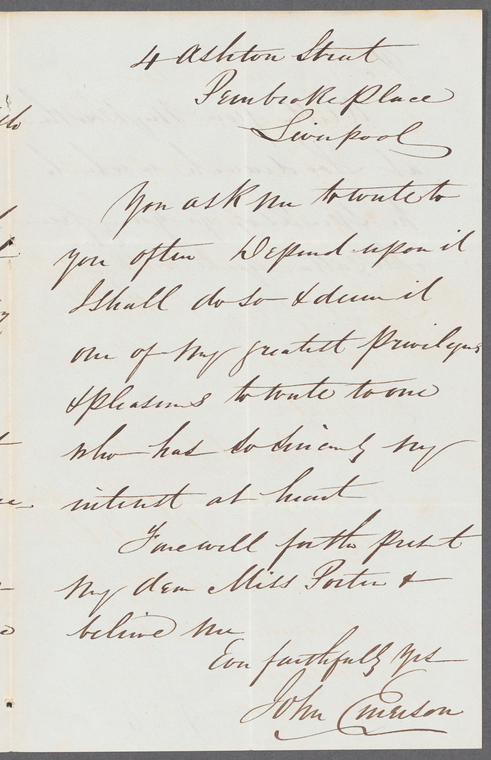 4 Ashton Street
Pembroke Place
Liverpool
You ask me to write to
you often Depend upon it
I shall do so & deem it
one of my greatest privileges
& pleasures to write to one
who has so sincerely my
interest at heart
Farewell for the present
my dear Miss Porter &
believe me
Ever faithfully Yrs
John Emerson